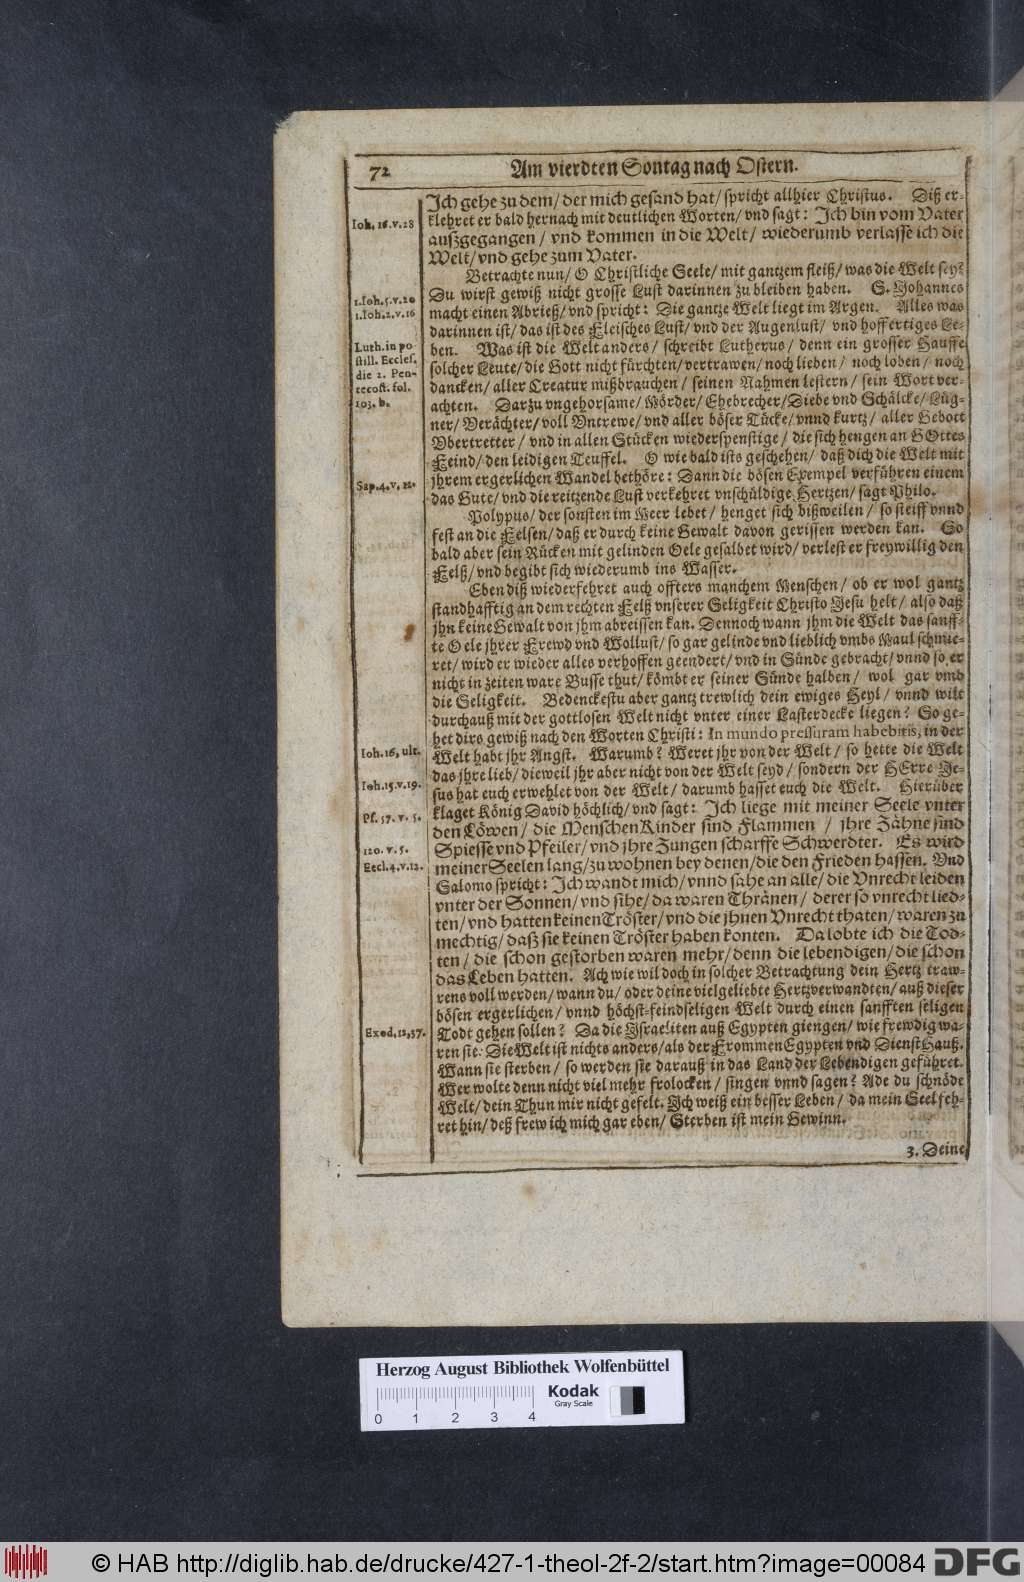 72
Am vierdten Sontag nach Ostern.
Ich gehe zu dem/ der mich gesand hat/ spricht allhier Christus. Diß er-
Ioh. 16. v. 28
klehret er bald hernach mit deutlichen Worten/ vnd sagt: Ich bin vom Vater
außgegangen/ vnd kommen in die Welt/ wiederumb verlasse ich die
Welt/ vnd gehe zum Vater.
Betrachte nun/ O Christliche Seele/ mit gantzem fleiß/ was die Welt sey?
1. Ioh. 5. v. 20
Du wirst gewiß nicht grosse Lust darinnen zu bleiben haben. S. Johannes
1. Ioh. 2. v. 16
macht einen Abrieß/ vnd spricht: Die gantze Welt liegt im Argen. Alles was
darinnen ist/ das ist des Fleisches Lust/ vnd der Augenlust/ vnd hoffertiges Le-
Luth. in po
still. Eccles.
die 2. Pen-
tecost. fol.
103. b.
ben. Was ist die Welt anders/ schreibt Lutherus/ denn ein grosser Hauffe
solcher Leute/ die Gott nicht fürchten/ vertrawen/ noch lieben/ noch loben/ noch
dancken/ aller Creatur mißbrauchen/ seinen Nahmen lestern/ sein Wort ver-
achten. Darzu vngehorsame/ Mörder/ Ehebrecher/ Diebe vnd Schälcke/ Lüg-
ner/ Verächter/ voll Vntrewe/ vnd aller böser Tücke/ vnnd kurtz/ aller Gebott
Vbertretter/ vnd in allen Stücken wiederspenstige/ die sich hengen an GOttes
Feind/ den leidigen Teuffel. O wie bald ists geschehen/ daß dich die Welt mit
jhrem ergerlichen Wandel bethöre: Dann die bösen Exempel verführen einem
Sap. 4. v. 12.
das Gute/ vnd die reitzende Lust verkehret vnschüldige Hertzen/ sagt Philo.
Polypus/ der sonsten im Meer lebet/ henget sich bißweilen/ so steiff vnnd
fest an die Felsen/ daß er durch keine Gewalt davon gerissen werden kan. So
bald aber sein Rücken mit gelinden Oele gesalbet wird/ verlest er freywillig den
Felß/ vnd begibt sich wiederumb ins Wasser.
Eben diß wiederfehret auch offters manchem Menschen/ ob er wol gantz
standhafftig an dem rechten Felß vnserer Seligkeit Christo Jesu helt/ also daß
jhn keine Gewalt von jhm abreissen kan. Dennoch wann jhm die Welt das sanff-
te Oele jhrer Frewd vnd Wollust/ so gar gelinde vnd lieblich vmbs Maul schmie-
ret/ wird er wieder alles verhoffen geendert/ vnd in Sünde gebracht/ vnnd so er
nicht in zeiten ware Busse thut/ kömbt er seiner Sünde halben/ wol gar vmb
die Seligkeit. Bedenckestu aber gantz trewlich dein ewiges Heyl/ vnnd wilt
durchauß mit der gottlosen Welt nicht vnter einer Lasterdecke liegen? So ge-
het dirs gewiß nach den Worten Christi: In mundo pressuram habebitis, in der
Ioh. 16, ult.
Welt habt jhr Angst. Warumb? Weret jhr von der Welt/ so hette die Welt
das jhre lieb/ dieweil jhr aber nicht von der Welt seyd/ sondern der HErre Je-
Ioh. 15. v. 19.
sus hat euch erwehlet von der Welt/ darumb hasset euch die Welt. Hierüber
klaget König David höchlich/ vnd sagt: Ich liege mit meiner Seele vnter
Ps. 57. v. 5.
den Löwen/ die MenschenKinder sind Flammen/ jhre Zähne sind
Spiesse vnd Pfeiler/ vnd jhre Zungen scharffe Schwerdter. Es wird
120. v. 5.
meiner Seelen lang/ zu wohnen bey denen/ die den Frieden hassen. Vnd
Eccl. 4. v. 12.
Salomo spricht: Ich wandt mich/ vnnd sahe an alle/ die Vnrecht leiden
vnter der Sonnen/ vnd sihe/ da waren Thränen/ derer so vnrecht lied-
ten/ vnd hatten keinen Tröster/ vnd die jhnen Vnrecht thaten/ waren zu
mechtig/ daß sie keinen Tröster haben konten. Da lobte ich die Tod-
ten/ die schon gestorben waren mehr/ denn die lebendigen/ die schon
das Leben hatten. Ach wie wil doch in solcher Betrachtung dein Hertz traw-
rens voll werden/ wann du/ oder deine vielgeliebte Hertzverwandten/ auß dieser
bösen ergerlichen/ vnnd höchst-feindseligen Welt durch einen sanfften seligen
Exod. 12, 37.
Todt gehen sollen? Da die Israeliten auß Egypten giengen/ wie frewdig wa-
ren sie: Die Welt ist nichts anders/ als der Frommen Egypten vnd DienstHauß.
Wann sie sterben/ so werden sie darauß in das Land der Lebendigen geführet.
Wer wolte denn nicht viel mehr frolocken/ singen vnnd sagen? Ade du schnöde
Welt/ dein Thun mir nicht gefelt. Ich weiß ein besser Leben/ da mein Seel feh-
ret hin/ deß frew ich mich gar eben/ Sterben ist mein Gewinn.
3. Deine
Herzog August Bibliothek Wolfenbüttel
0 1 2 3 4
Kodak
Gray Scale
© HAB http://diglib.hab.de/drucke/427-1-theol-2f-2/start.htm?image=00084
DFG